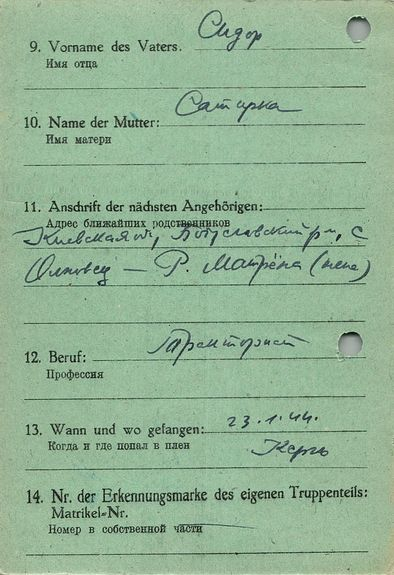 9. Vorname des Vaters. Сидор
Имя отца
10. Name der Mutter:
Имя матери
11. Anschrift der nächsten Angehörigen:
Адрес ближайших родственников
Киевская об, Богуславский р-н, с
— Р. Матрёна (жена)
12. Beruf: Тракторист
Профессия
13. Wann und wo gefangen: 23.1.44.
Когда и где попал в плен Керчь
14. Nr. der Erkennungsmarke des eigenen Truppenteils:
Matrikel-Nr.
Номер в собственной части